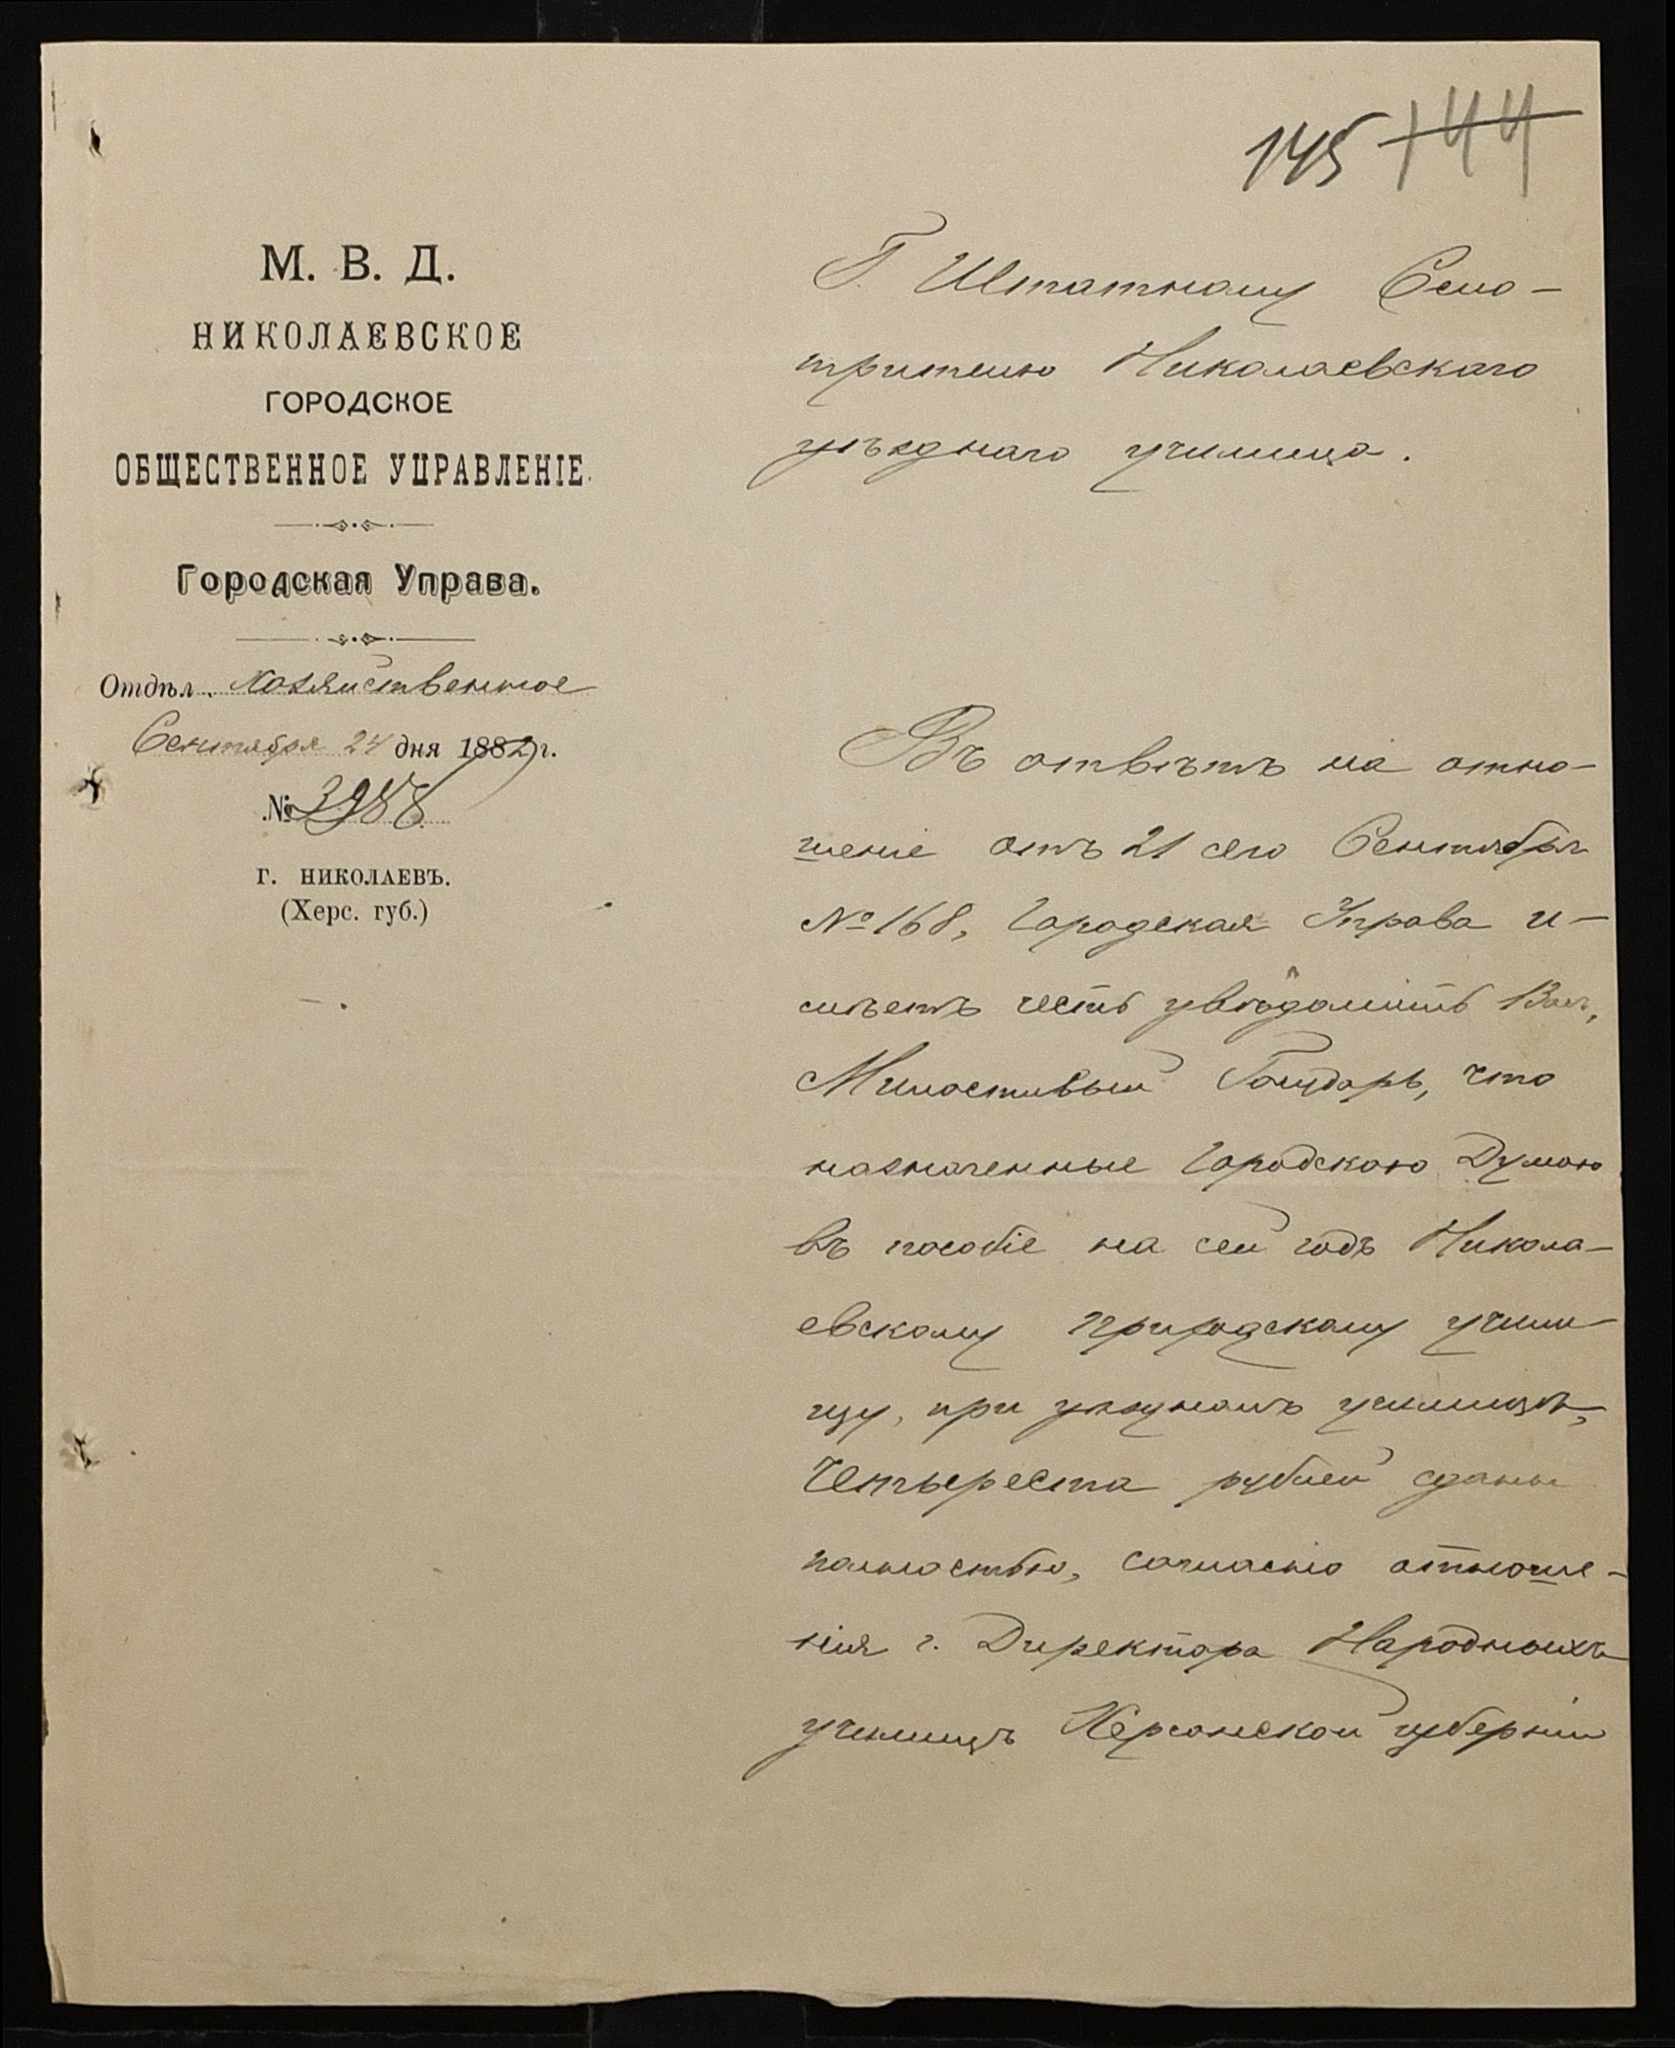 145 144
М. В. Д.
НИКОЛАЕВСКОЕ
ГОРОДСКОЕ
ОБЩЕСТВЕННОЕ УПРАВЛЕНІЕ.
Городская Управа.
Отдѣл. Хозяйственное
Сентября 24 дня 1882 г.
№ 3988
Г. НИКОЛАЕВЪ.
(Херс. губ.)
Г. Штатному Смо-
трителю Николаевскаго
уѣзднаго училища.
Въ отвѣтъ на отно-
шеніе отъ 21 сего Сентября
№ 168, Городская Управа и-
мѣетъ честь увѣдомить Васъ,
Милостивый Государь, что
назначенные Городскою Думою
въ пособіе на сей годъ Никола-
евскому приходскому учили-
щу, при уѣздномъ училищѣ,
Четыреста рублей сданы
полностью, согласно отноше-
нія г. Директора Народныхъ
училищъ Херсонской губерніи